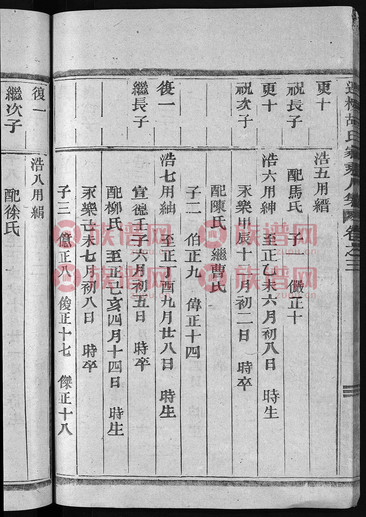 更十
祝長子
浩五用縉
配馬氏 子一 儼正十
更十
祝次子
浩六用紳 至正乙未六月初八日 時生
永樂甲辰十月初二日 時卒
配陳氏 繼曹氏
子二 伯正九 偉正十四
復一
繼長子
浩七用紬 至正丁酉九月廿八日 時生
宣德壬子六月初五日 時卒
配柳氏 至正己亥四月十四日 時生
永樂己未七月初八日 時卒
子三 億正八 俊正十七 傑正十八
復一
繼次子
浩八用絹
配徐氏
族譜网